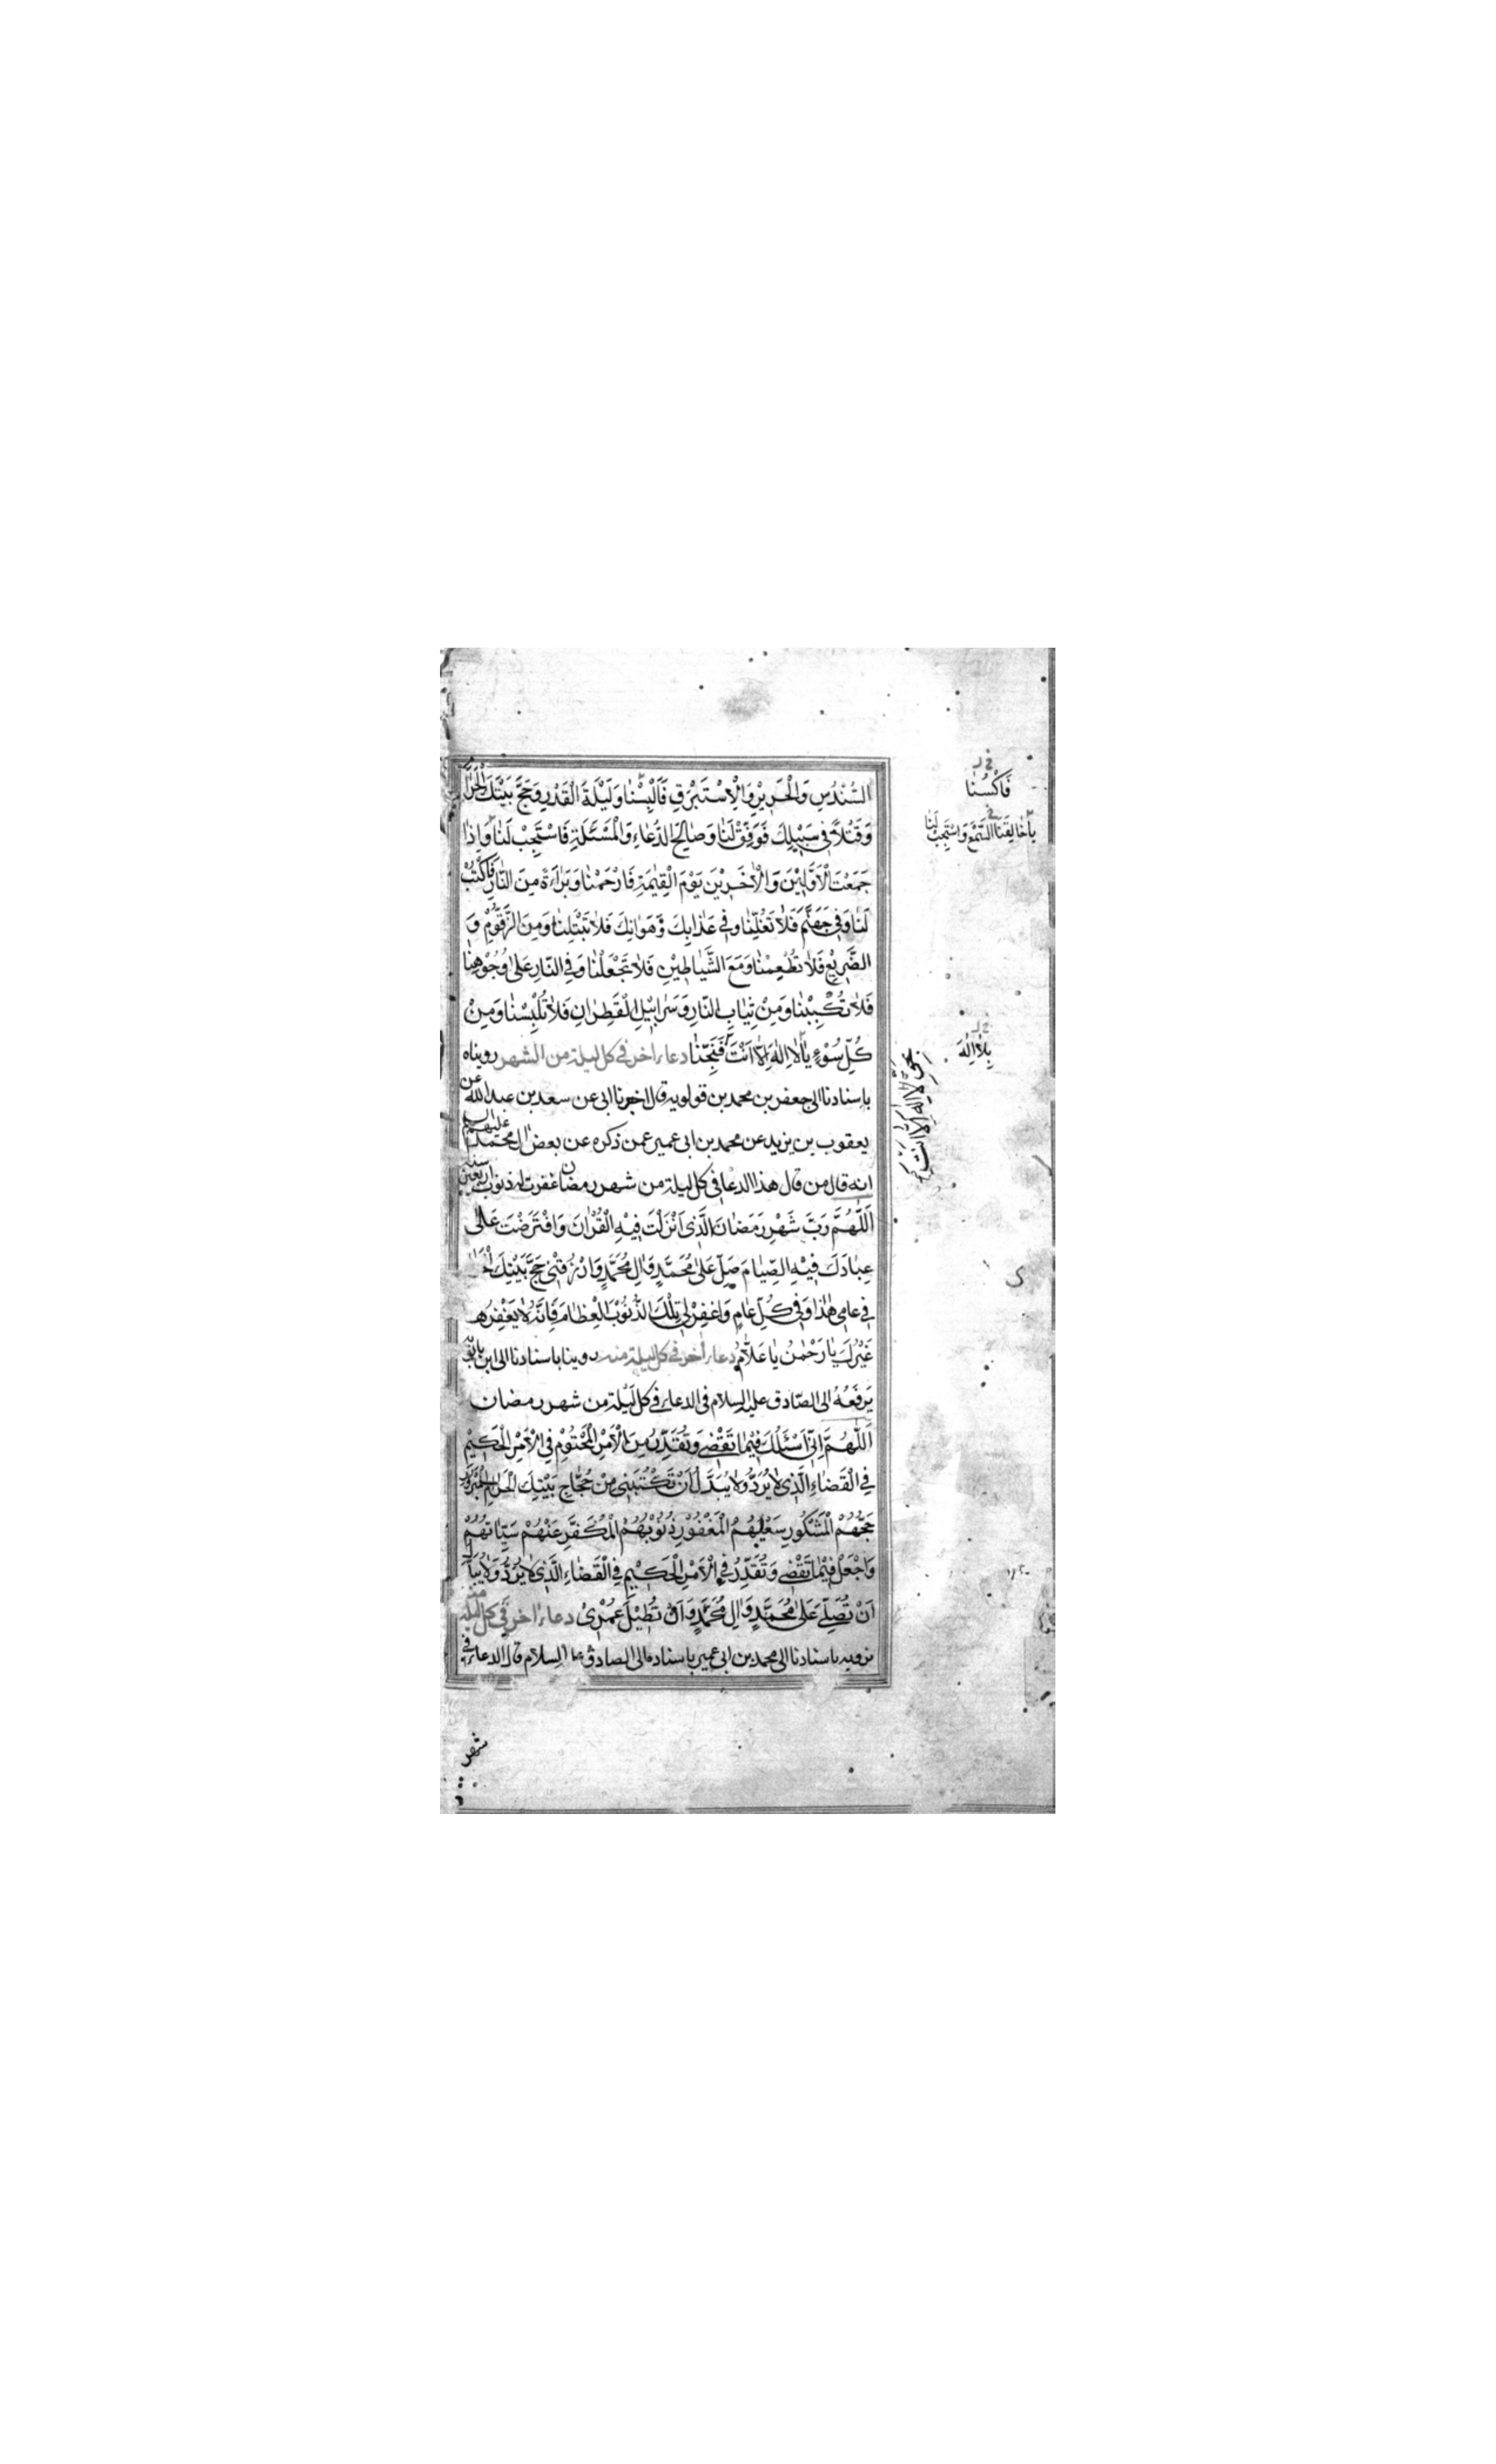 السُّنْدُسِ وَالْحَرِيْرِ وَالْاِسْتَبْرَقِ فَاَلْبِسْنَا وَلَيْلَةَ الْقَدْرِ وَحَجَّ بَيْتِكَ الْحَرَامِ
وَقَتْلًا فِى سَبِيْلِكَ فَوَفِّقْ لَنَا وَصَالِحَ الدُّعَاءِ وَالْمَسْئَلَةِ فَاسْتَجِبْ لَنَا وَاِذَا
جَمَعْتَ الْاَوَّلِيْنَ وَالْاٰخَرِيْنَ يَوْمَ الْقِيٰمَةِ فَارْحَمْنَا وَبَرَاءَةً مِنَ النَّارِ فَاكْتُبْ
لَنَا وَفِى جَهَنَّمَ فَلَا تَغُلَّنَا وَفِى عَذَابِكَ وَهَوَانِكَ فَلَا تَبْتَلِنَا وَمِنَ الزَّقُّوْمِ وَ
الضَّرِيْعِ فَلَا تُطْعِمْنَا وَمَعَ الشَّيَاطِيْنِ فَلَا تَجْعَلْنَا وَفِى النَّارِ عَلٰى وُجُوْهِنَا
فَلَا تُكْبِبْنَا وَمِنْ ثِيَابِ النَّارِ وَسَرَابِيْلِ الْقَطِرَانِ فَلَا تُلْبِسْنَا وَمِنْ
كُلِّ سُوْءٍ يَا لَا اِلٰهَ اِلَّا اَنْتَ فَنَجِّنَا دعاء اخر فى كل ليلة من الشهر رويناه
باسنادنا الى جعفر بن محمد بن قولويه قال اخبرنا ابى عن سعد بن عبد الله عن
يعقوب بن يزيد عن محمد بن ابى عمير عمن ذكره عن بعض ال محمد عليهم السلام
انه قال من قال هذا الدعا فى كل ليلة من شهر رمضان غفرت له ذنوب اربعين سنة
اَللّٰهُمَّ رَبَّ شَهْرِ رَمَضَانَ الَّذِى اَنْزَلْتَ فِيْهِ الْقُرْاٰنَ وَافْتَرَضْتَ عَلٰى
عِبَادِكَ فِيْهِ الصِّيَامَ صَلِّ عَلٰى مُحَمَّدٍ وَاٰلِ مُحَمَّدٍ وَارْزُقْنِى حَجَّ بَيْتِكَ الْحَرَامِ
فِى عَامِى هٰذَا وَفِى كُلِّ عَامٍ وَاغْفِرْ لِى تِلْكَ الذُّنُوْبَ الْعِظَامَ فَاِنَّهُ لَا يَغْفِرُهَا
غَيْرُكَ يَا رَحْمٰنُ يَا عَلَّامُ دعاء اخر فى كل ليلة منه روينا باسنادنا الى ابن بابويه
يَرفَعُهُ الى الصّادق عليه السلام فى الدعاء فى كل لَيْلة من شهر رمضان
اَللّٰهُمَّ اِنِّى اَسْئَلُكَ فِيْمَا تَقْضِى وَتُقَدِّرُ مِنَ الْاَمْرِ الْمَحْتُوْمِ فِى الْاَمْرِ الْحَكِيْمِ
فِى الْقَضَاءِ الَّذِى لَا يُرَدُّ وَلَا يُبَدَّلُ اَنْ تَكْتُبَنِى مِنْ حُجَّاجِ بَيْتِكَ الْحَرَامِ الْمَبْرُوْرِ
حَجُّهُمْ الْمَشْكُورِ سَعْيُهُمُ الْمَغْفُوْرِ ذُنُوْبُهُمُ الْمُكَفَّرِ عَنْهُمْ سَيِّاٰتُهُمْ
وَاجْعَلْ فِيْمَا تَقْضِى وَتُقَدِّرُ فِى الْاَمْرِ الْحَكِيْمِ فِى الْقَضَاءِ الَّذِى لَا يُرَدُّ وَلَا يُبَدَّلُ
اَنْ تُصَلِّىَ عَلٰى مُحَمَّدٍ وَاٰلِ مُحَمَّدٍ وَاَنْ تُطِيْلَ عُمْرِىْ دعاء اخر فى كل ليلة منه
نرويه باسنادنا الى محمد بن ابى عمير باسناده الى الصادق ع السلام قال الدعاء فى
شهر
فَاكْسُنَا
يَا خَالِقَنَا اسْمَعْ وَاسْتَجِبْ لَنَا
بِلَا اِلٰهَ
بِحَقِّ لَا اِلٰهَ اِلَّا اَنْتَ